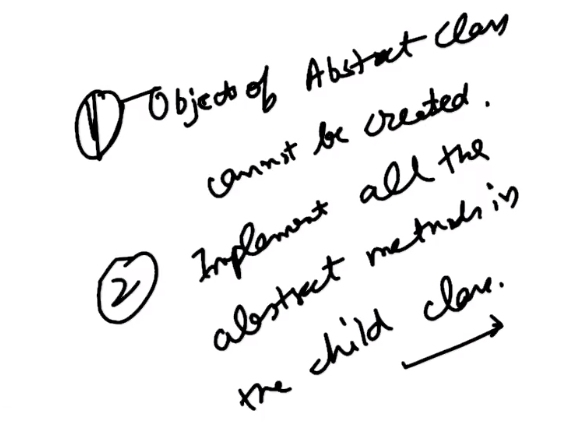 ① Objects of Abstract Class
cannot be created.
② Implement all the
abstract methods in
the child class.